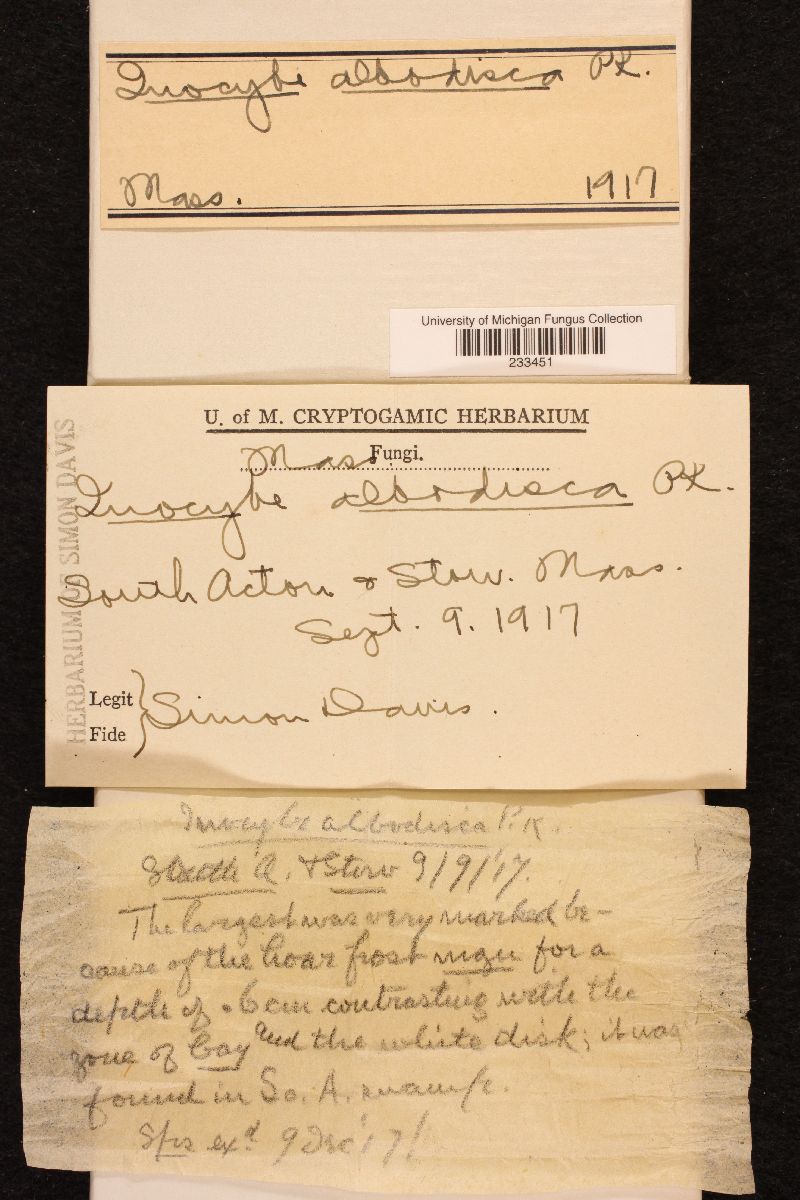 Inocybe albodisca Pk.
Mass. 1917
University of Michigan Fungus Collection
233451
U. of M. CRYPTOGAMIC HERBARIUM
Fungi.
Mass
Inocybe albodisca Pk.
South Acton & Stow. Mass.
Sept. 9. 1917
Legit
Fide
Simon Davis.
HERBARIUM OF SIMON DAVIS
Inocybe albodisca Pk.
South A. & Stow 9/9/17.
The largest was very marked be-
cause of the hoar frost mgn for a
depth of .6 cm contrasting with the
zone of bay and the white disk; it was
found in So. A. swamp.
Sps exd 9 Dec 17/